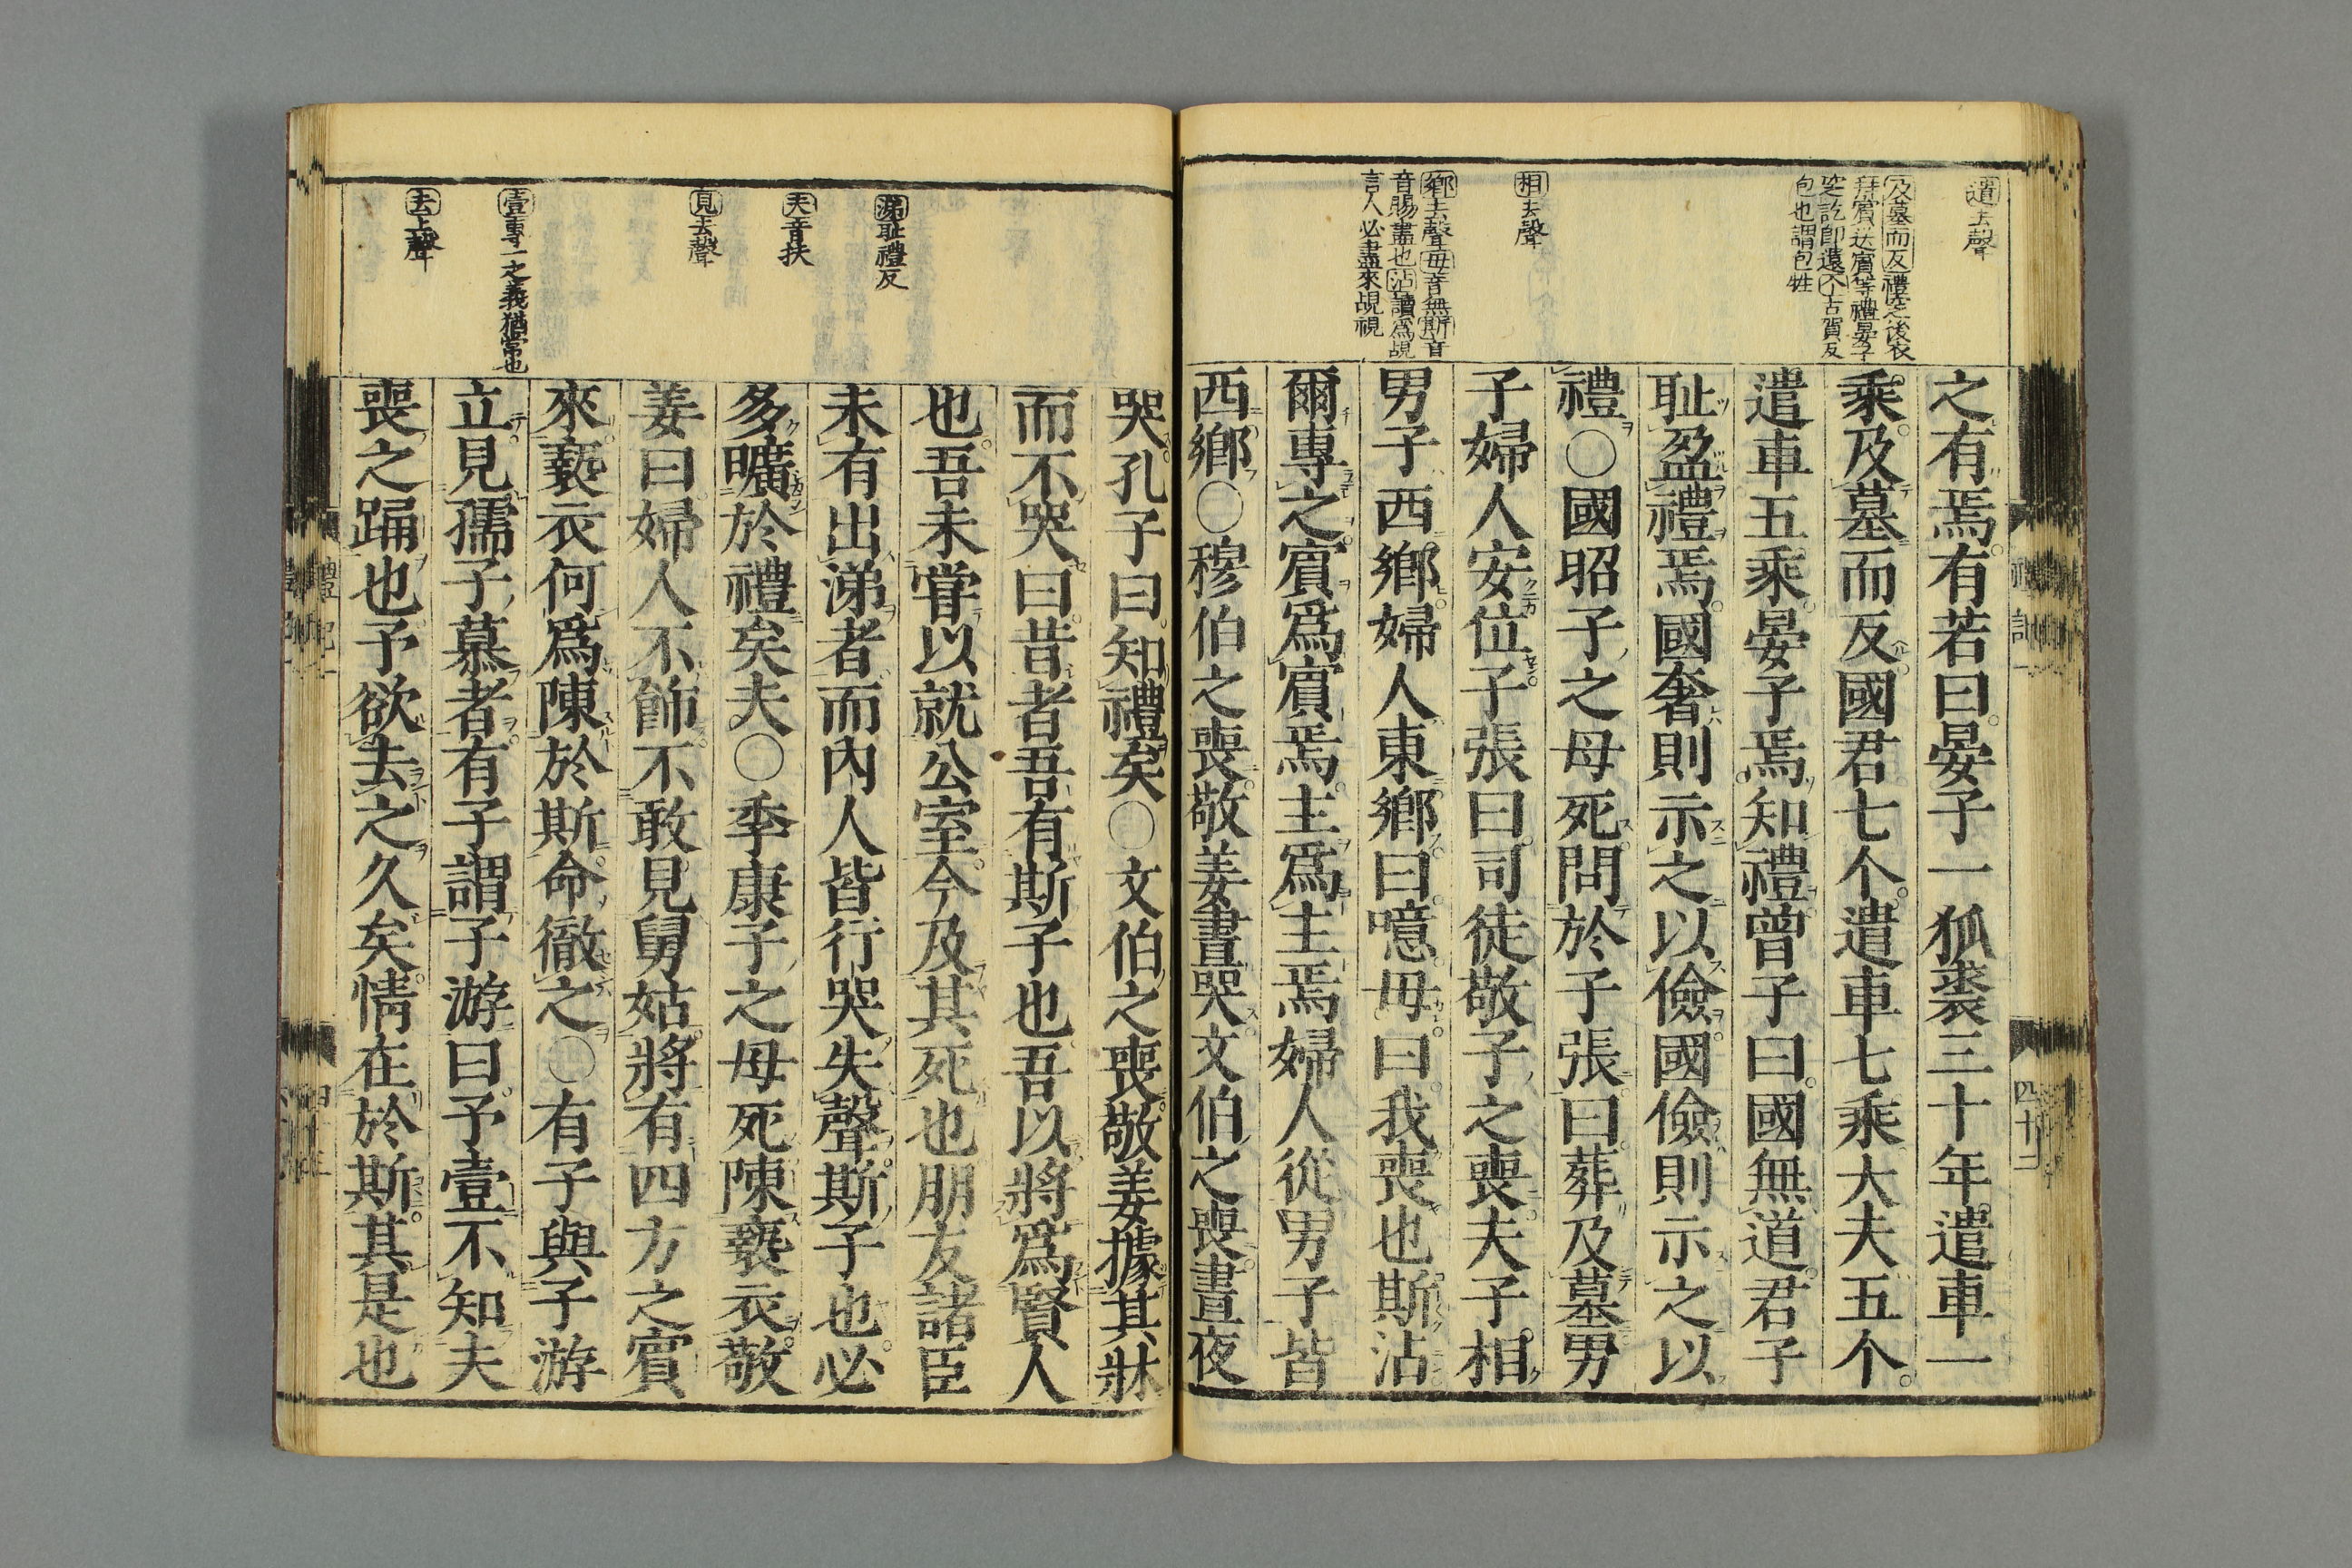 遣去聲
及墓而反禮窆後衣
拜賓送賓等禮晏子
窆訖即還个古賀反
包也謂包牲
相去聲
鄉去聲毋音無斯音
音賜盡也沾讀爲覘
言人必盡來覘視
之有焉有若曰晏子一狐裘三十年遣車一
乘及墓而反國君七个遣車七乘大夫五个
遣車五乘晏子焉知禮曾子曰國無道君子
耻盈禮焉國奢則示之以儉國儉則示之以
禮○國昭子之母死問於子張曰葬及墓男
子婦人安位子張曰司徒敬子之喪夫子相
男子西鄉婦人東鄉曰噫毋曰我喪也斯沾
爾專之賓爲賓焉主爲主焉婦人從男子皆
西鄉○穆伯之喪敬姜晝哭文伯之喪晝夜
涕耻禮反
夫音扶
見去聲
壹專一之義猶常也
去上聲
哭孔子曰知禮矣○文伯之喪敬姜據其牀
而不哭曰昔者吾有斯子也吾以將爲賢人
也吾未嘗以就公室今及其死也朋友諸臣
未有出涕者而內人皆行哭失聲斯子也必
多曠於禮矣夫○季康子之母死陳褻衣敬
姜曰婦人不飾不敢見舅姑將有四方之賓
來褻衣何爲陳於斯命徹之○有子與子游
立見孺子慕者有子謂子游曰予壹不知夫
喪之踊也予欲去之久矣情在於斯其是也
禮記一
四十三